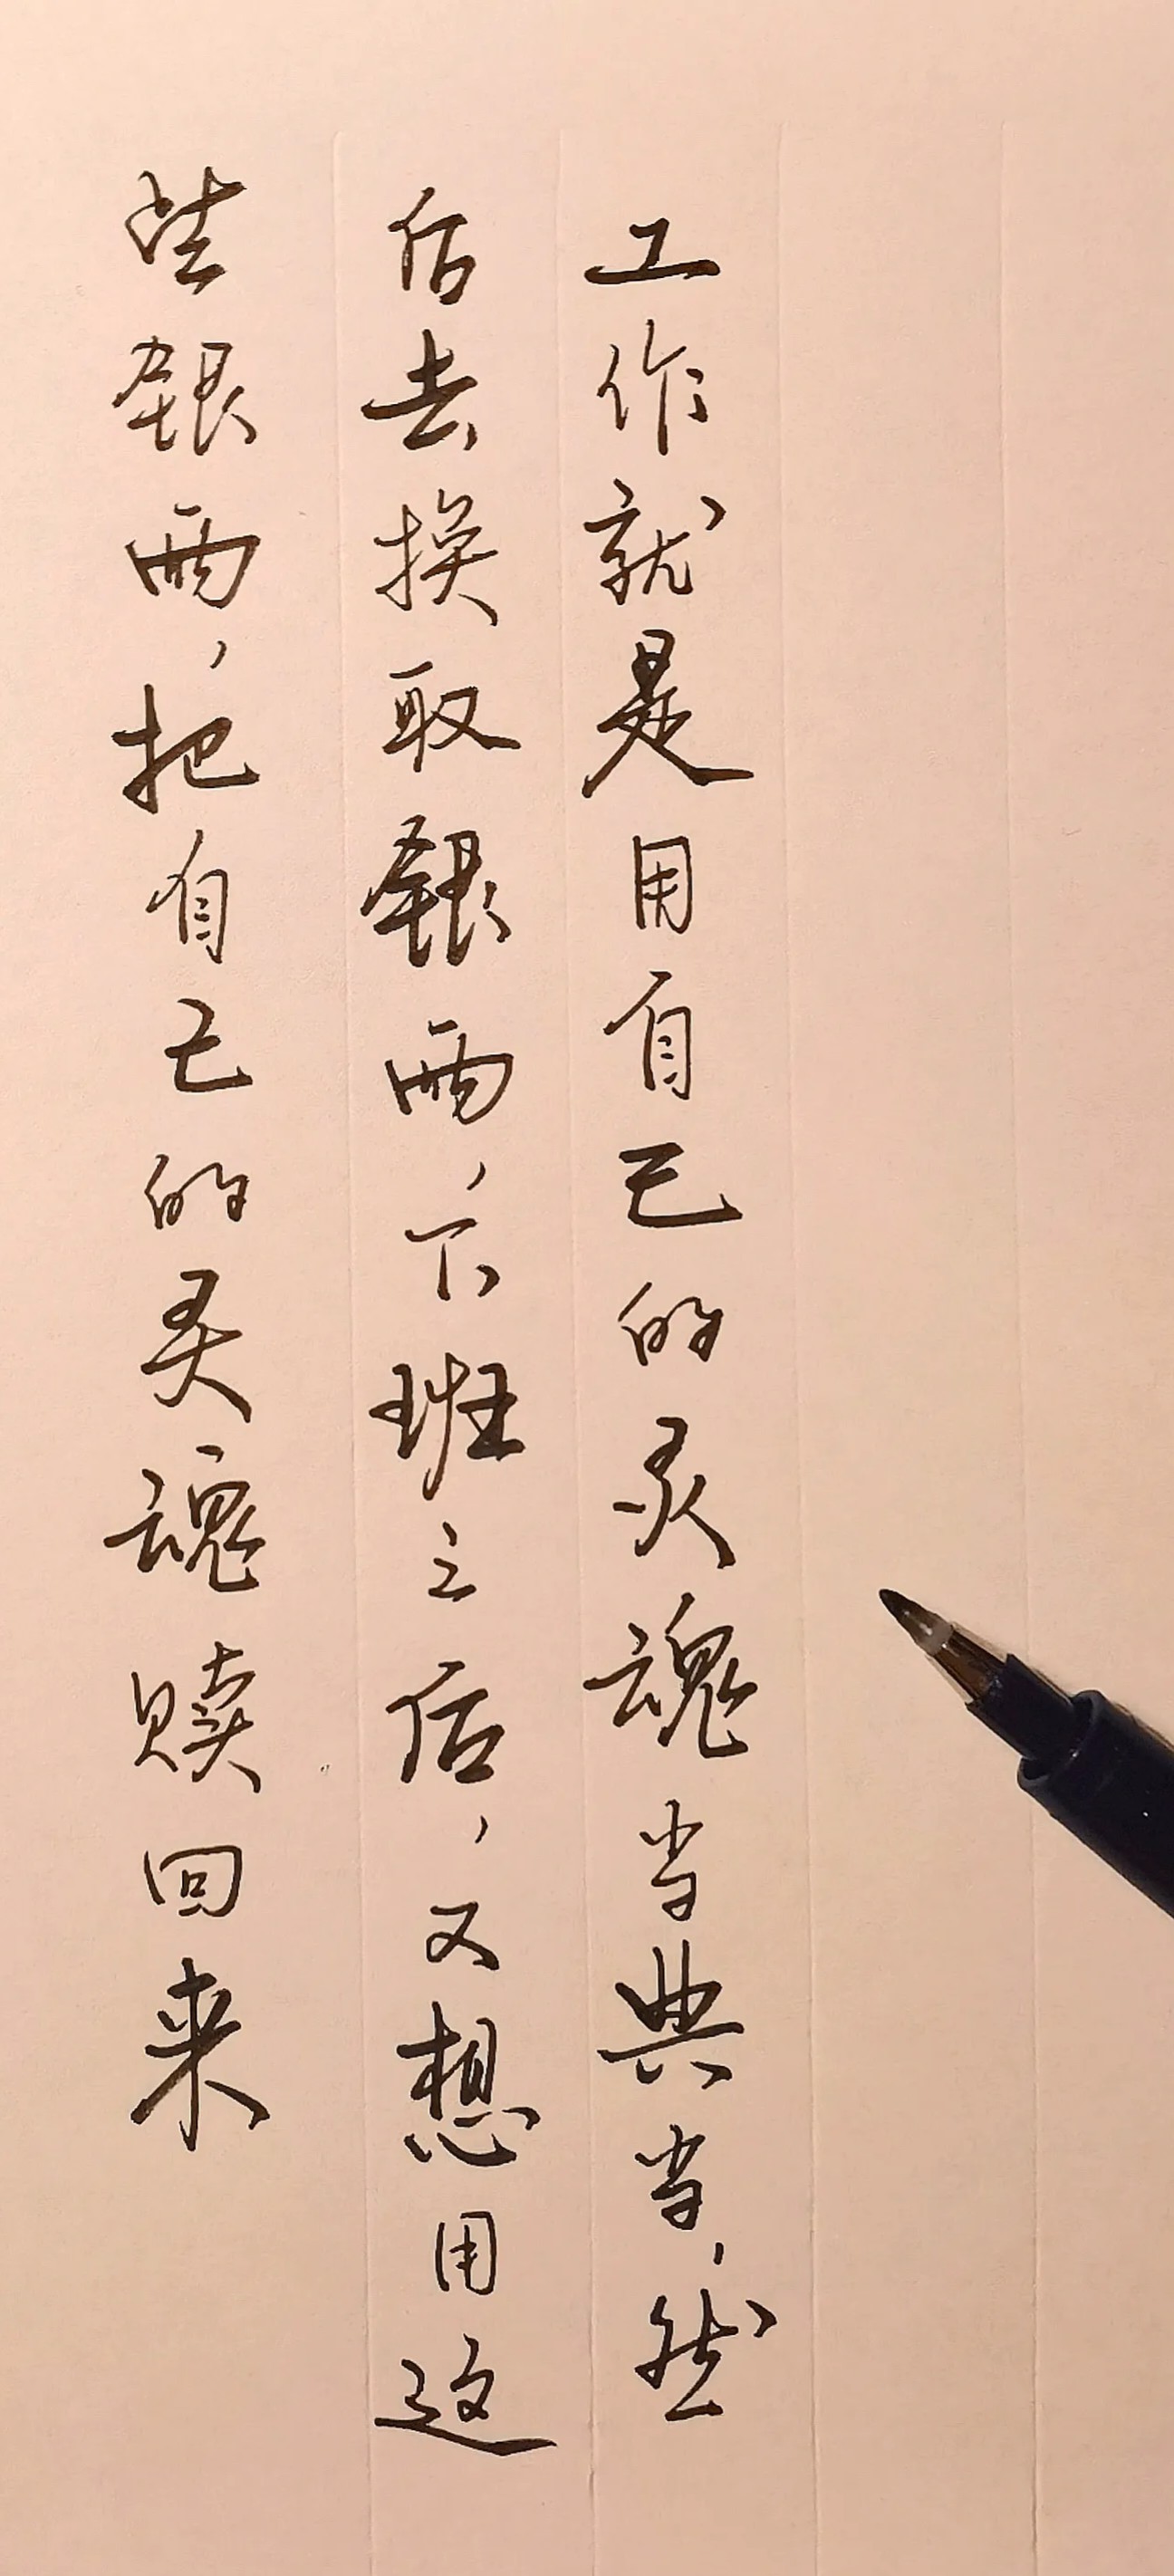 工作就是用自己的灵魂当典当,然
后去换取银两,下班之后,又想用这
些银两,把自己的灵魂赎回来